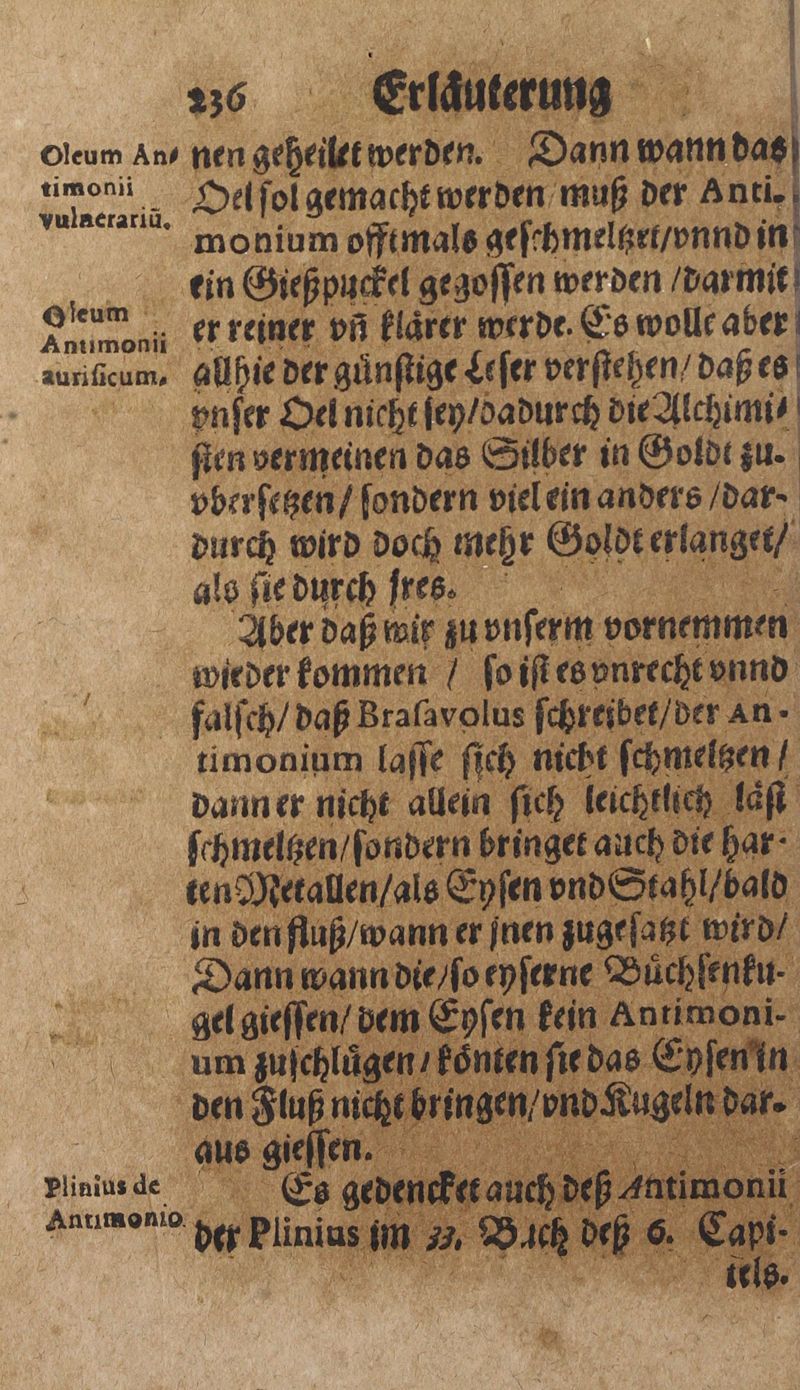 236 Erläuterung
Oleum An⸗
timonii
vulnerariū.
nen geheilet werden. Dann wann das
Oel sol gemacht werden muß der Anti-
monium offtmals geschmeltzet/vnnd in
ein Gießpuckel gegossen werden /darmit
Oleum
Antimonii
aurificum.
er reiner vñ klärer werde. Es wolle aber
allhie der günstige Leser verstehen/ daß es
vnser Oel nicht sey/dadurch die Alchimi⸗
sten vermeinen das Silber in Goldt zu-
vbersetzen/ sondern viel ein anders /dar-
durch wird doch mehr Goldt erlanget/
als sie durch jres.
Aber daß wir zu vnserm vornemmen
wieder kommen / so ist es vnrecht vnnd
falsch/ daß Brasavolus schreibet/der An-
timonium lasse sich nicht schmeltzen /
dann er nicht allein sich leichtlich läst
schmeltzen/sondern bringet auch die har-
ten Metallen/als Eysen vnd Stahl/bald
in den fluß/wann er jnen zugesatzt wird/
Dann wann die/so eyserne Büchsenku-
gel giessen/ dem Eysen kein Antimoni-
um zuschlügen/ könten sie das Eysen in
den Fluß nicht bringen/vnd Kugeln dar-
aus giessen.
Plinius de
Antimonio.
Es gedencket auch deß Antimonii
der Plinius im 33. Buch deß 6. Capi-
tels.